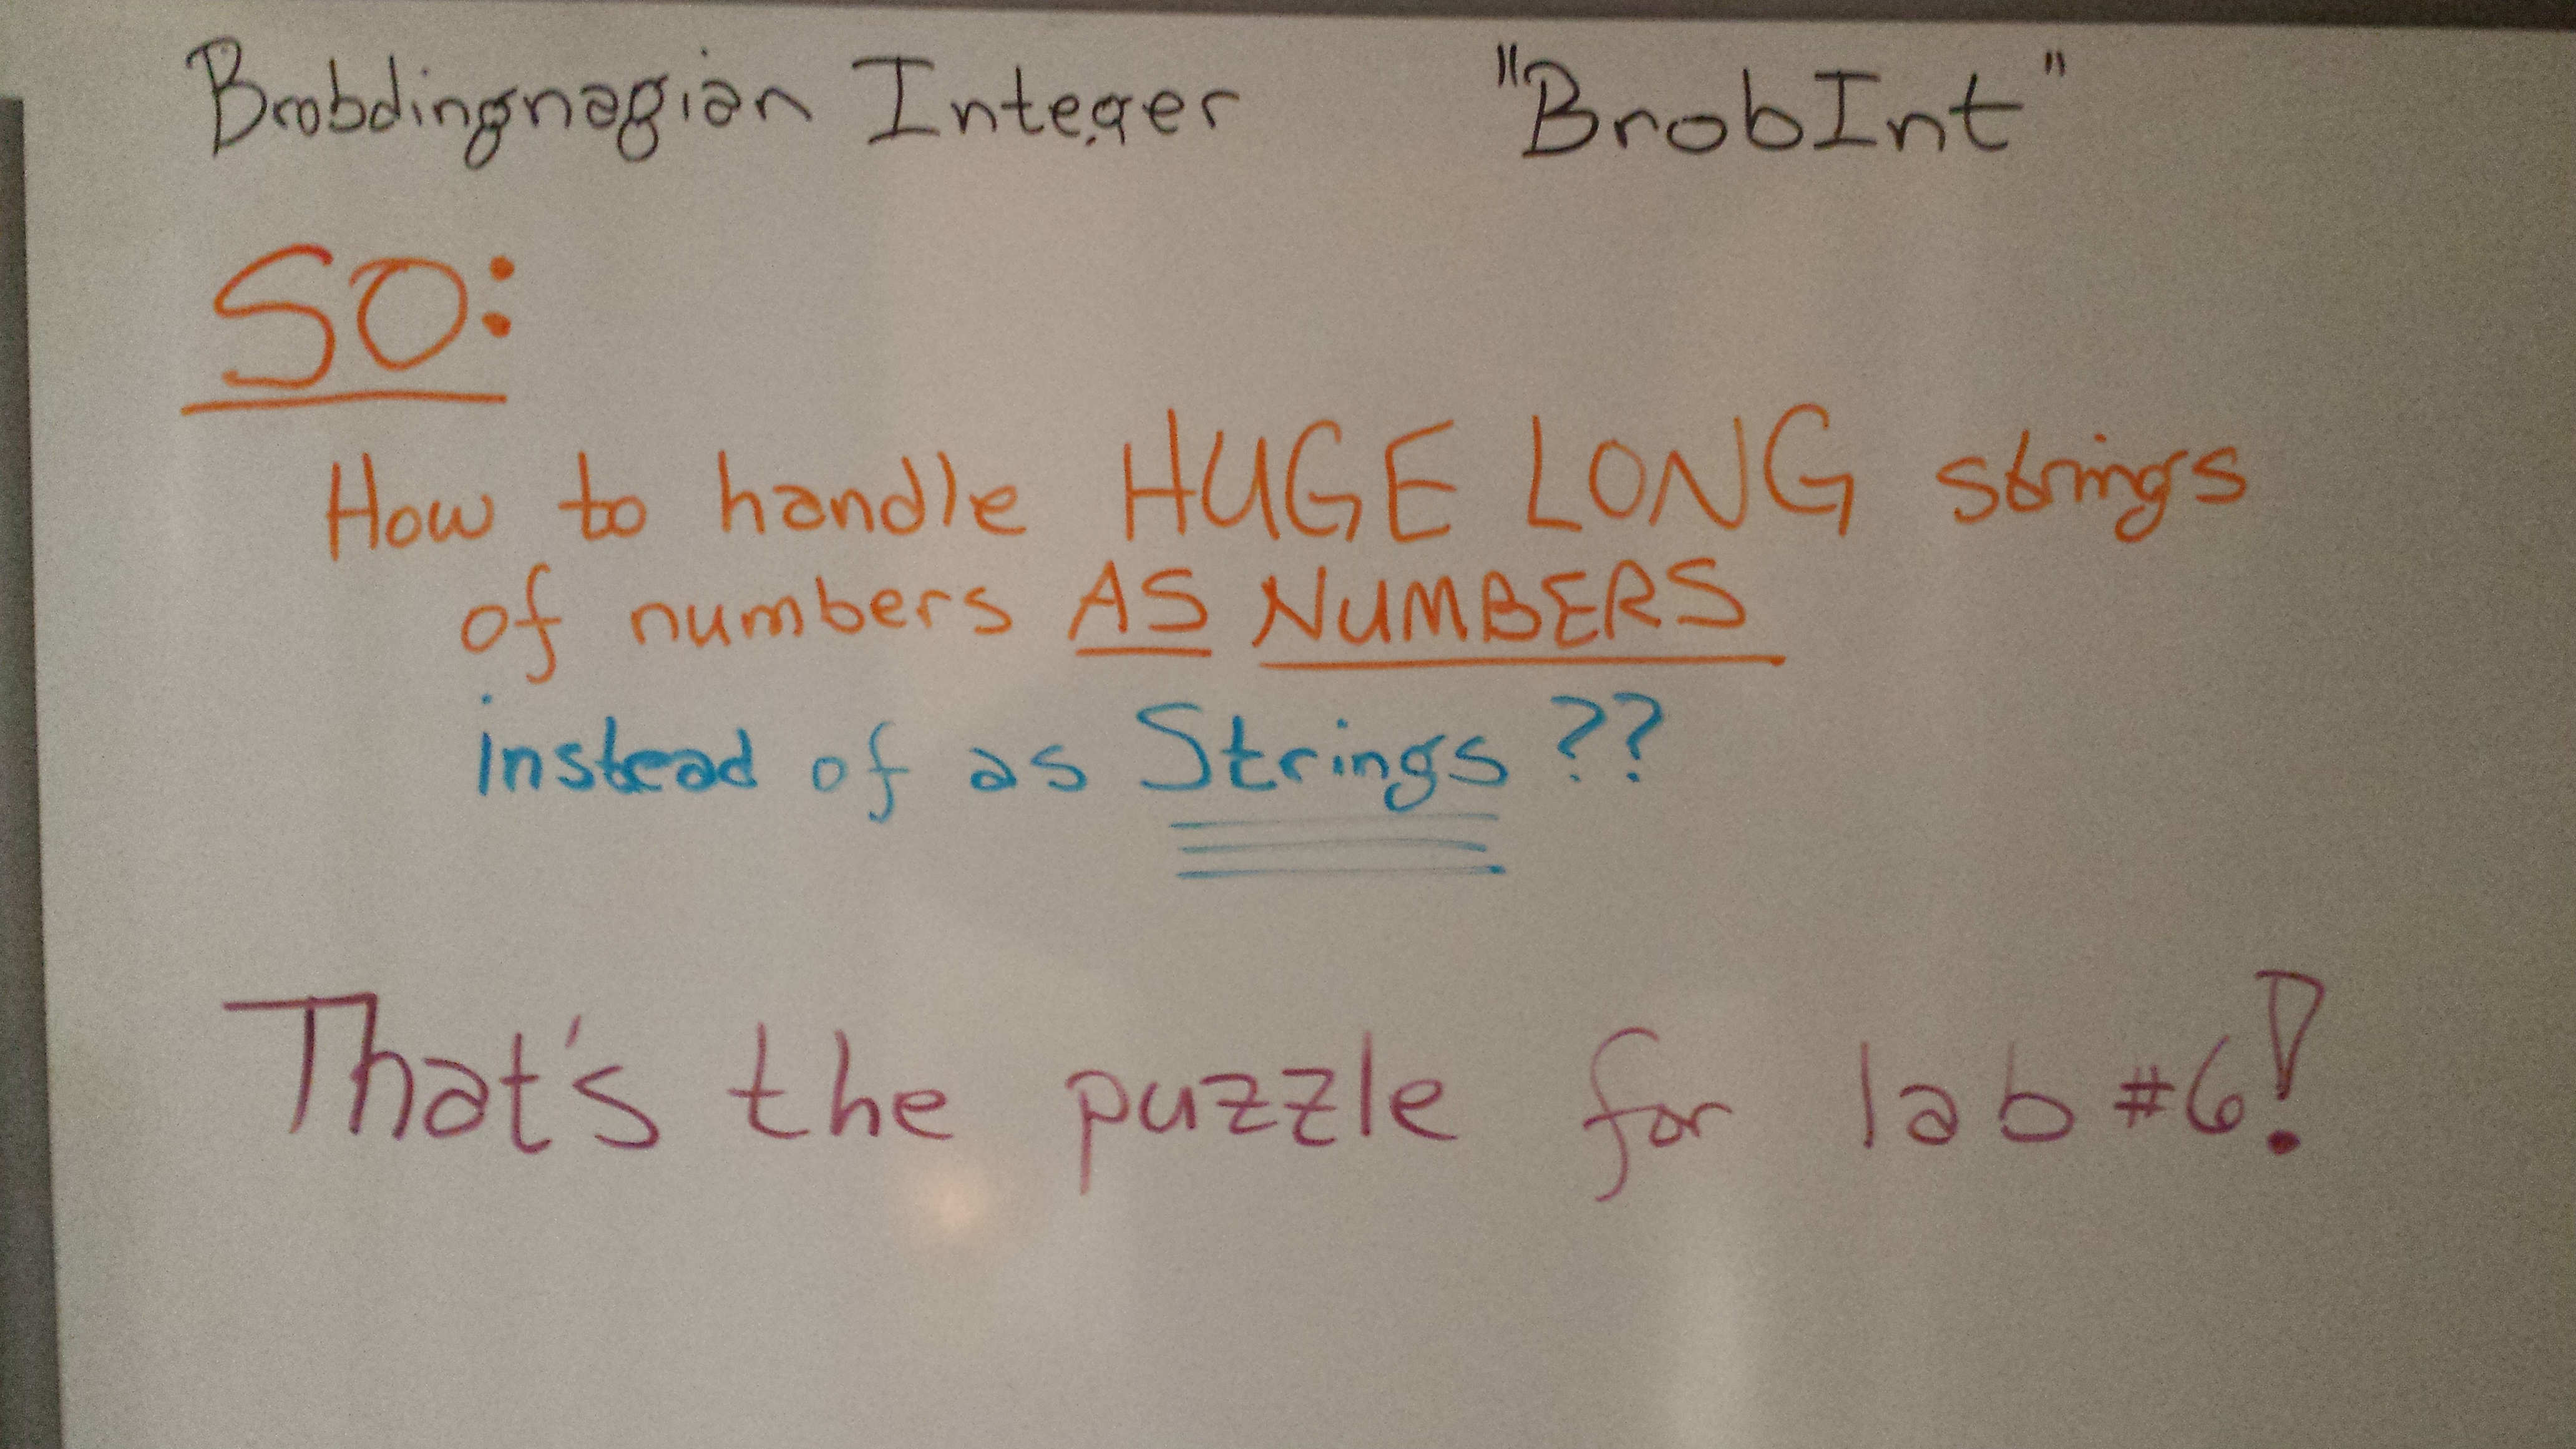 Brobdingnagian Integer "BrobInt"
SO:
How to handle HUGE LONG strings
of numbers AS NUMBERS
instead of as Strings ??
That's the puzzle for lab #6!